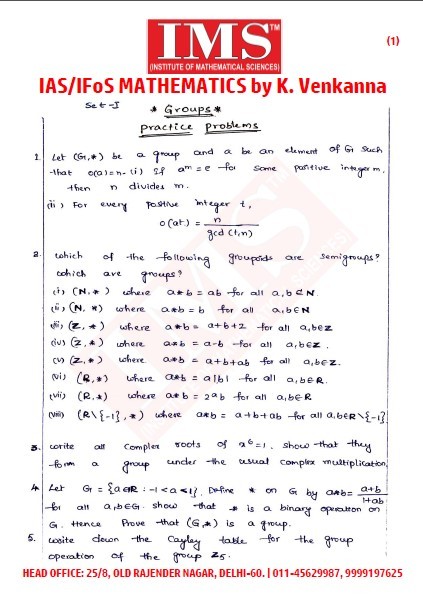 IMS™
(INSTITUTE OF MATHEMATICAL SCIENCES)
(1)
IAS/IFoS MATHEMATICS by K. Venkanna
Set-I
* Groups *
practice problems
1. Let (G,*) be a group and a be an element of G such
that o(a)=n. (i) If a^m = e for some positive integer m,
then n divides m.
(ii) For every positive integer t,
o(a^t) = n / gcd(t,n)
2. which of the following groupoids are semigroups?
which are groups?
(i) (N,*) where a*b = ab for all a,b∈N.
(ii) (N,*) where a*b = b for all a,b∈N
(iii) (Z,*) where a*b = a+b+2 for all a,b∈Z
(iv) (Z,*) where a*b = a-b for all a,b∈Z.
(v) (Z,*) where a*b = a+b+ab for all a,b∈Z.
(vi) (R,*) where a*b = a|b| for all a,b∈R.
(vii) (R,*) where a*b = 2^a b for all a,b∈R
(viii) (R\{-1},*) where a*b = a+b+ab for all a,b∈R\{-1}.
3. write all complex roots of x^6=1. show that they
form a group under the usual complex multiplication.
4. Let G = {a∈R : -1<a<1}. Define * on G by a*b = a+b / 1+ab
for all a,b∈G. show that * is a binary operation on
G. Hence Prove that (G,*) is a group.
5. write down the Cayley table for the group
operation of the group Z5.
HEAD OFFICE: 25/8, OLD RAJENDER NAGAR, DELHI-60. | 011-45629987, 9999197625